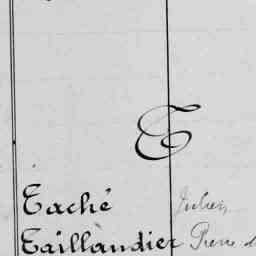 T
Taché Julien
Taillandier Pierre